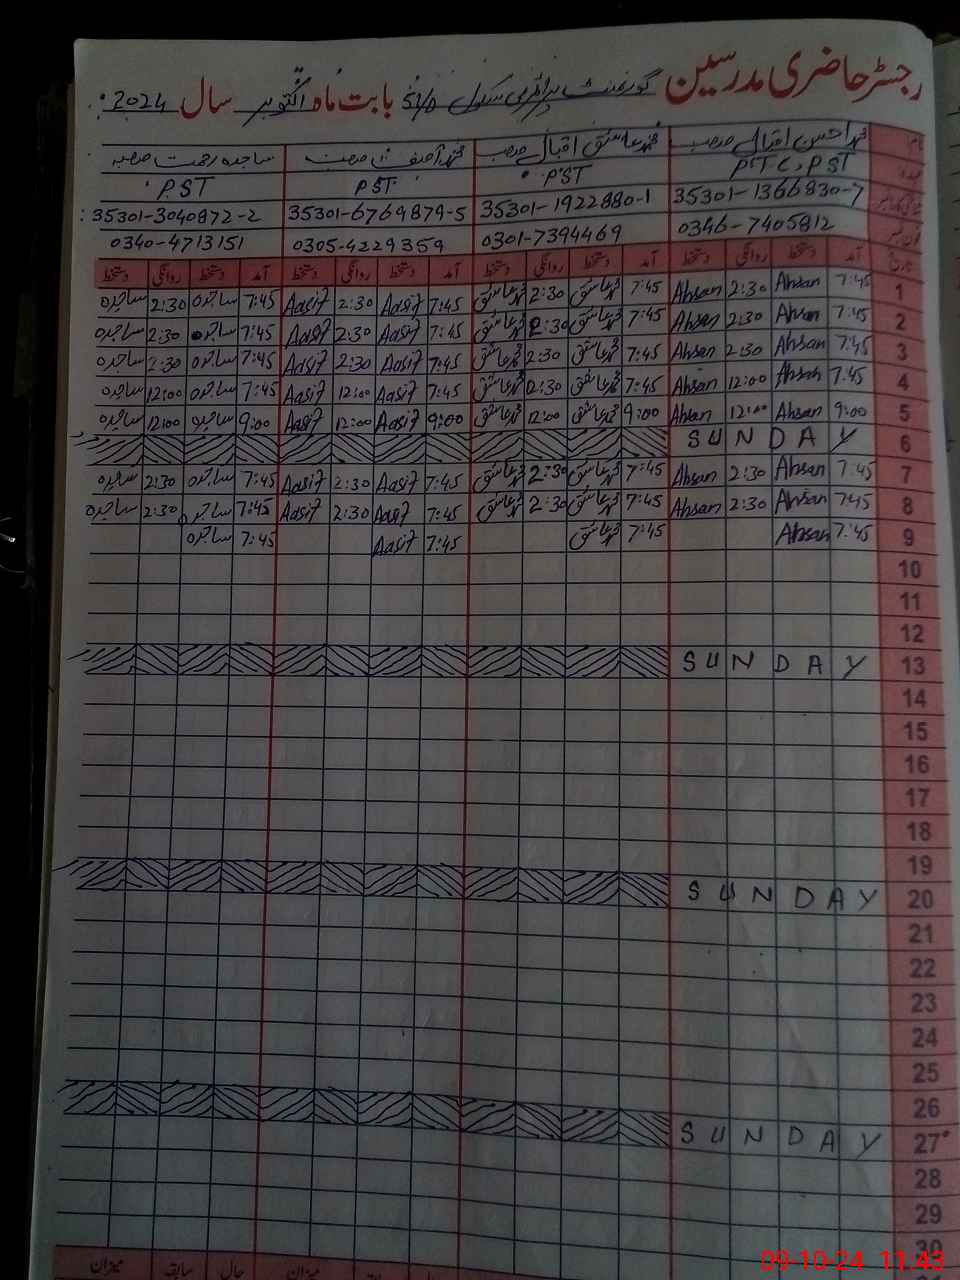 رجسٹر حاضری مدرسین گورنمنٹ پرائمری سکول بابت ماہ اکتوبر سال 2024
نام محمد احسن اقبال صاحب محمد عاشق اقبال صاحب محمد آصف صاحب ساجدہ رحمت صاحبہ
عہدہ PST PST PST
35301-1366830-7 35301-1922880-1 35301-6769879-5 35301-3040872-2
فون نمبر 0346-7405812 0301-7394469 0305-4229359 0340-4713151
تاریخ آمد دستخط روانگی دستخط آمد دستخط روانگی دستخط آمد دستخط روانگی دستخط آمد دستخط روانگی دستخط
1 7:45 Ahsan 2:30 Ahsan 7:45 محمد عاشق 2:30 محمد عاشق 7:45 Aasif 2:30 Aasif 7:45 ساجدہ 2:30 ساجدہ
2 7:45 Ahsan 2:30 Ahsan 7:45 محمد عاشق 2:30 محمد عاشق 7:45 Aasif 2:30 Aasif 7:45 ساجدہ 2:30 ساجدہ
3 7:45 Ahsan 2:30 Ahsan 7:45 محمد عاشق 2:30 محمد عاشق 7:45 Aasif 2:30 Aasif 7:45 ساجدہ 2:30 ساجدہ
4 7:45 Ahsan 12:00 Ahsan 7:45 محمد عاشق 12:30 محمد عاشق 7:45 Aasif 12:00 Aasif 7:45 ساجدہ 12:00 ساجدہ
5 9:00 Ahsan 12:00 Ahsan 9:00 محمد عاشق 12:00 محمد عاشق 9:00 Aasif 12:00 Aasif 9:00 ساجدہ 12:00 ساجدہ
6 SUNDAY
7 7:45 Ahsan 2:30 Ahsan 7:45 محمد عاشق 2:30 محمد عاشق 7:45 Aasif 2:30 Aasif 7:45 ساجدہ 2:30 ساجدہ
8 7:45 Ahsan 2:30 Ahsan 7:45 محمد عاشق 2:30 محمد عاشق 7:45 Aasif 2:30 Aasif 7:45 ساجدہ 2:30 ساجدہ
9 7:45 Ahsan 7:45 محمد عاشق 7:45 Aasif 7:45 ساجدہ
10
11
12
13 SUNDAY
14
15
16
17
18
19
20 SUNDAY
21
22
23
24
25
26
27 SUNDAY
28
29
30
میزان حال سابقہ میزان
09-10-24 11:43